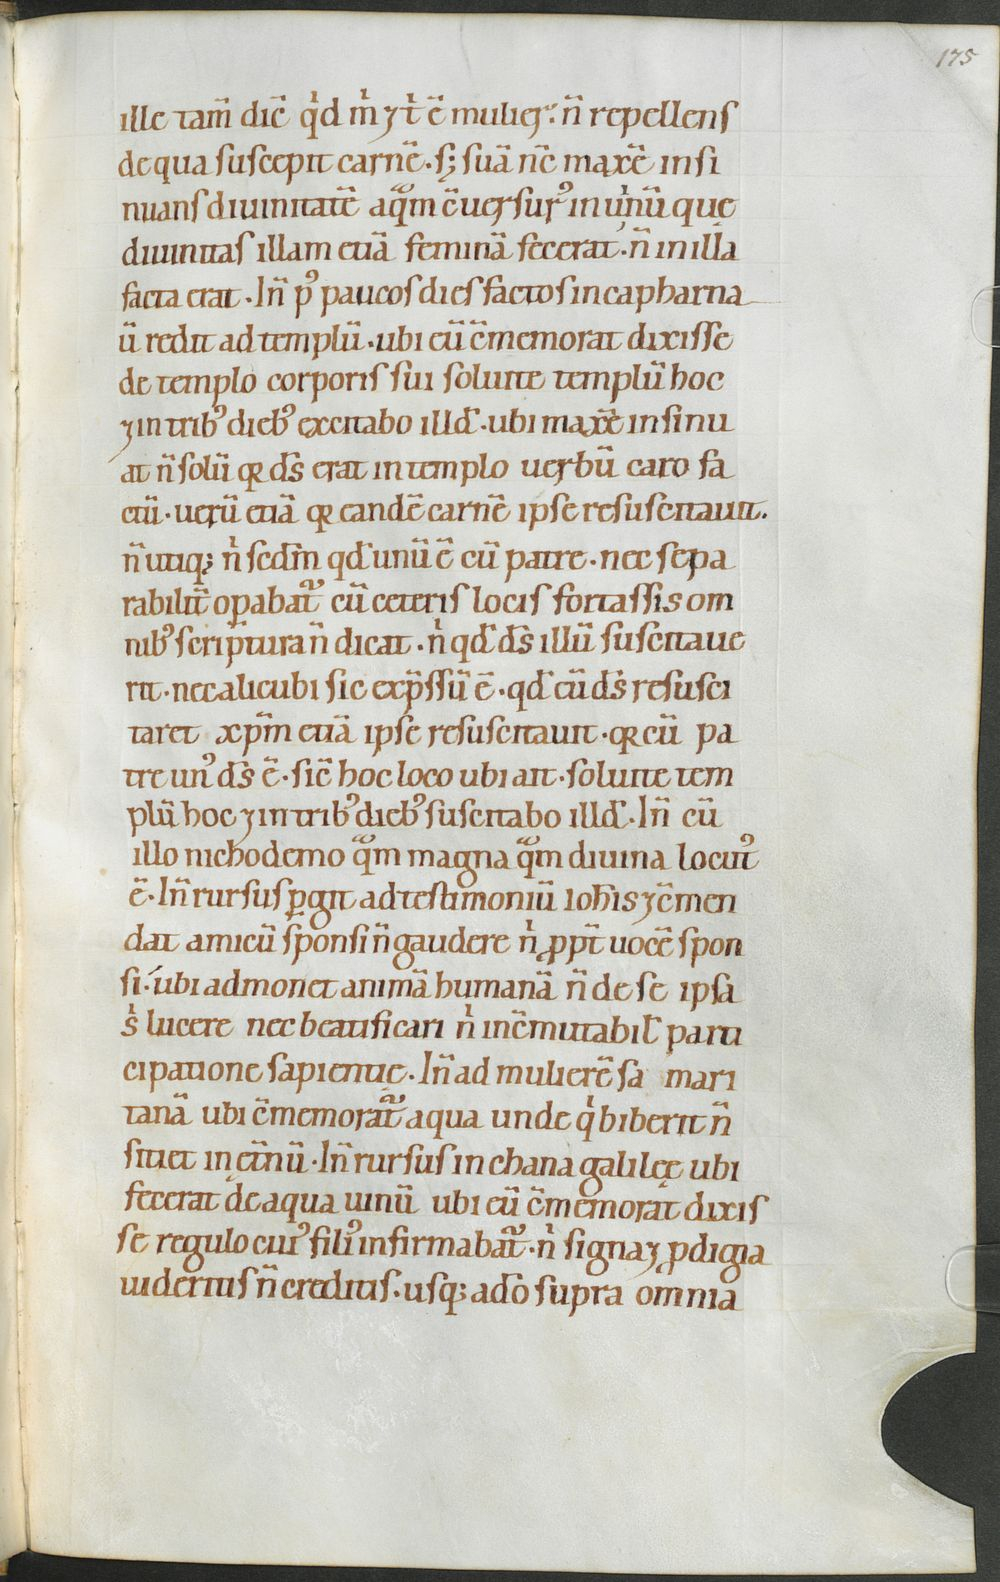 175
ille tam̄ dic̄ qͥd mͥ ⁊ tͥ ē mulier. n̄ repellens
de qua suscepit carnē. sꝫ suā nc̄ maxē insi
nuans diuinitatē aq̄m c̄uersurꝰ in uinū quę
diuinitas illam etiā feminā fecerat. n̄ in illa
facta erat. In̄ pꝰ paucos dies factos in capharna
ū redit ad templū. ubi eū c̄memorat dixisse
de templo corporis sui soluite templū hoc
⁊ in tribꝰ diebꝰ excitabo illđ. ubi maxē insinu
at n̄ solū qr ds̄ erat in templo uerbū caro fa
ctū. uerū etiā qr eandē carnē ipse resuscitauit.
n̄ utiqꝫ nͥ sedm̄ qđ unū ē cū patre. nec sepa
rabilit̄ oꝑabat᷑ cū ceteris locis fortassis om
nibꝰ scriptura n̄ dicat. nͥ qđ ds̄ illū suscitaue
rit. nec alicubi sic exp̄ssū ē. qđ cū ds̄ resusci
taret xp̄m etiā ipse resuscitauit. qr cū pa
tre unꝰ ds̄ ē. sic̄ hoc loco ubi ait. soluite tem
plū hoc ⁊ in tribꝰ diebꝰ suscitabo illđ. In̄ cū
illo nichodemo q̄m magna q̄m diuina locutꝰ
ē. In̄ rursus ꝑgit ad testimoniū ioh̄is ⁊ c̄men
dat amicū sponsi n̄ gaudere nͥ ꝓpt̄ uocē spon
si. ubi admonet animā humanā n̄ de se ipsa
sͥ lucere nec beatificari nͥ inc̄mutabil̄ parti
cipatione sapientię. In̄ ad mulierē sa mari
tanā ubi c̄memorat᷑ aqua unde qͥ biberit n̄
sitiet in et̄nū. In̄ rursus in chana galilęę ubi
fecerat de aqua uinū ubi eū c̄memorat dixis
se regulo cuiꝰ filiꝰ infirmabat᷑. nͥ signa ⁊ ꝓdigia
uideritis n̄ creditis. usqꝫ adō supra omnia